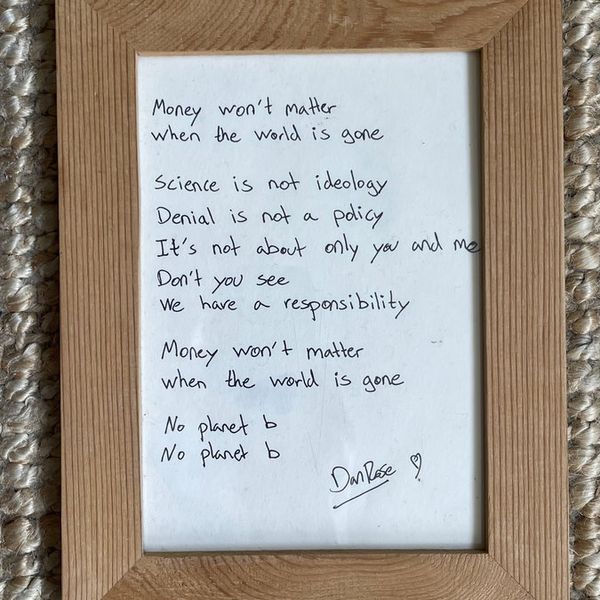 Money won't matter
when the world is gone
Science is not ideology
Denial is not a policy
It's not about only you and me
Don't you see
We have a responsibility
Money won't matter
when the world is gone
No planet b
No planet b
Dan Rose